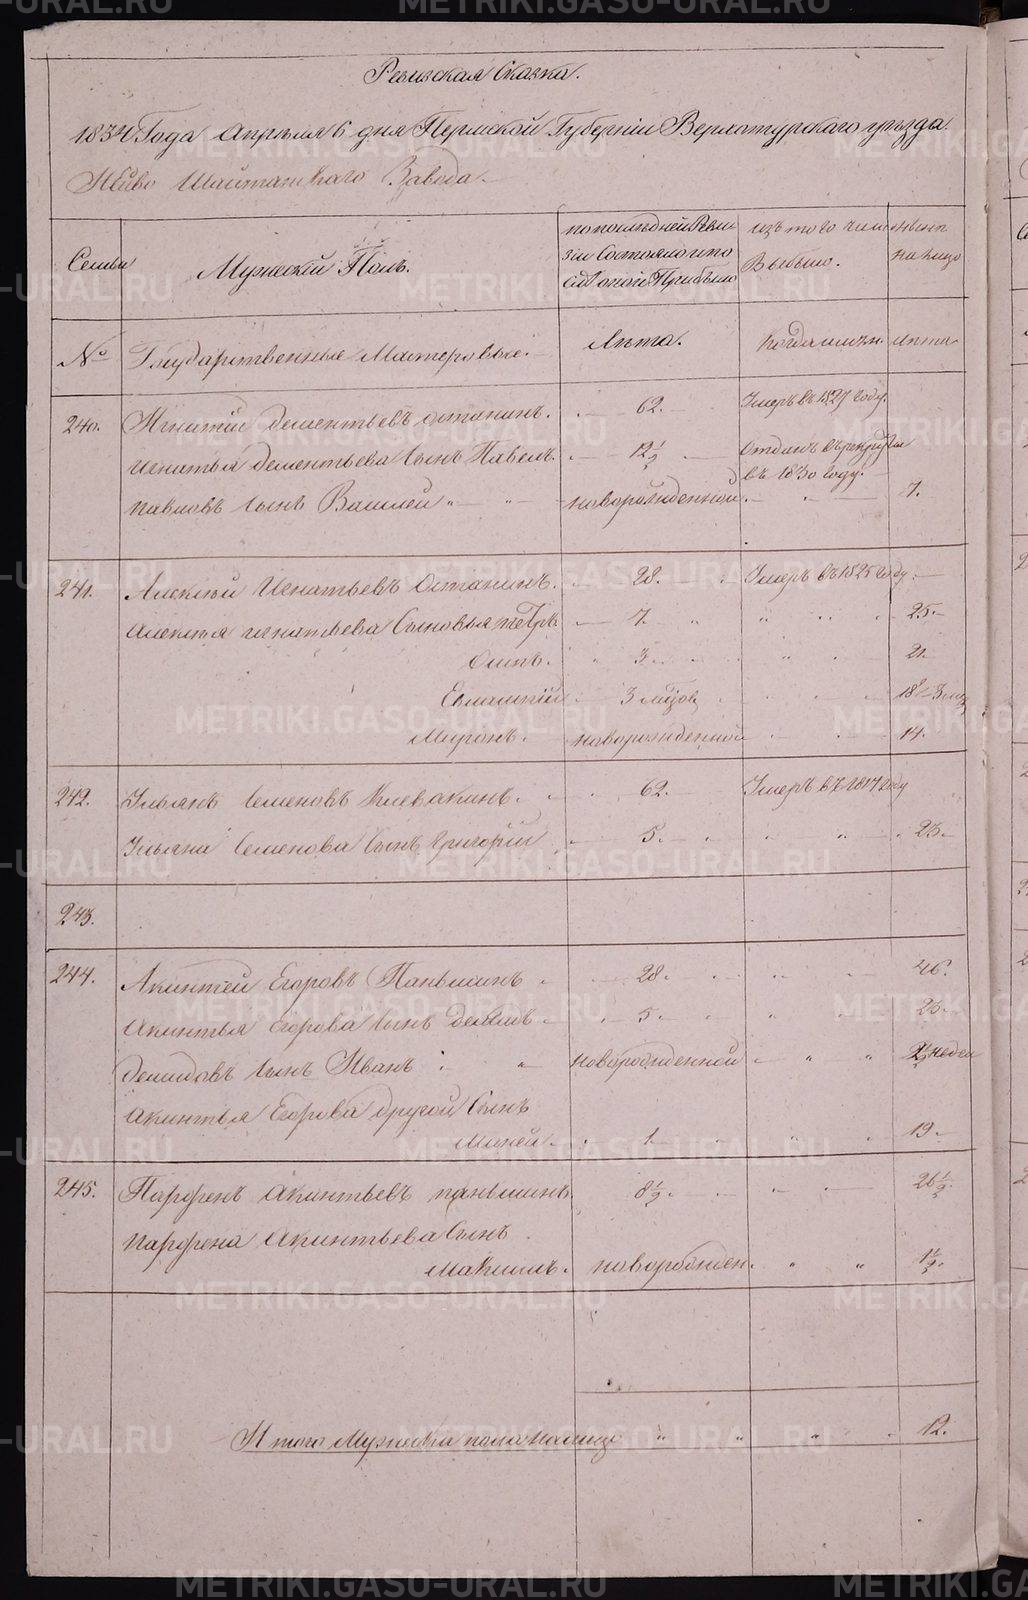 Ревизская Сказка.
1834 Года Апреля 6 дня Пермской Губернии Верхотурского уезда
Нейво Шайтанскаго Завода.
Семьи
Мужеской Полъ.
по последней Реви-
зіи Состояло и по
сле оной Прибыло
изъ того числа
Выбыло.
ныне
на лицо
№
Государственные Мастеровые.
Лета.
когда именно.
лета
240. Игнатій дементьевъ останинъ. 62. Умеръ въ 1827 году.
игнатья дементьева Сынъ Павелъ. 12 1/2 Отданъ въ рекруты
въ 1830 году.
павловъ сынъ Василей " " новорожденной. " 7.
241. Алексей Игнатьевъ Останинъ. 28. Умеръ въ 1825 году.
Алексея игнатьева Сыновья петръ 7. " " " 25.
3. " " 21.
3 месяцов 18 3 мес
Миронъ. новорожденной 14.
242. Ульянъ Семеновъ Клевакинъ. 62. Умеръ въ 1817 году
Ульяна Семенова Сынъ Григорій 5. " " 23.
243.
244. Акинтей Егоровъ Паньшинъ 28 " 46.
Акинтья Егорова сынъ демидъ 5 " " 23.
Демидовъ сынъ Иванъ " новорожденной " " недел
Акинтья Егорова другой Сынъ
Миней. 1 " 19.
245. Парфенъ Акинтьевъ паньшинъ 8 1/2. " 26 1/2.
Парфена Акинтьева Сынъ
Максимъ. новорожден. " " 1 1/2.
Итого Мужеска пола налицо " " " 12.
METRIKI.GASO-URAL.RU